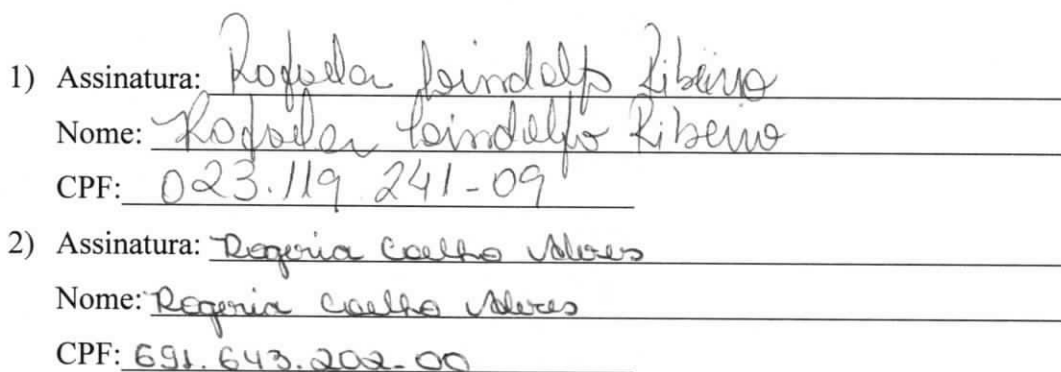 1) Assinatura: Rafaela Lindolfo Ribeiro
Nome: Rafaela Lindolfo Ribeiro
CPF: 023.119.241-09
2) Assinatura: Rogeria Coelho
Nome: Rogeria Coelho
CPF: 691.643.202-00